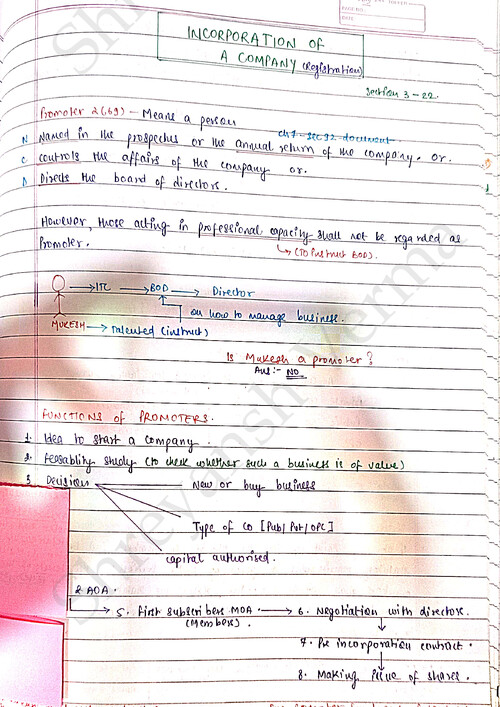 INCORPORATION OF
A COMPANY (Registration)
Section 3 - 22.
Promoter 2(69) - Means a person
ch 7 - sec 92 - document
N Named in the prospectus or the annual return of the company. or.
C controls the affairs of the company or.
D Directs the board of directors.
However, those acting in professional capacity shall not be regarded as
Promoter.
(TO instruct BOD).
ITC BOD Director
on how to manage business.
MUKESH Talented (instruct)
Is Mukesh a promoter?
Ans:- NO
FUNCTIONS OF PROMOTERS.
1. Idea to start a company.
2. Feasablity study (to check whether such a business is of value)
3. Decision New or buy business
Type of CO [Pub/Pvt/OPC]
capital authorised.
& AOA.
5. First subscribers MOA. 6. Negotiation with directors.
(Members).
7. Pre incorporation contract.
8. Making issue of shares.
Shreyansh Verma